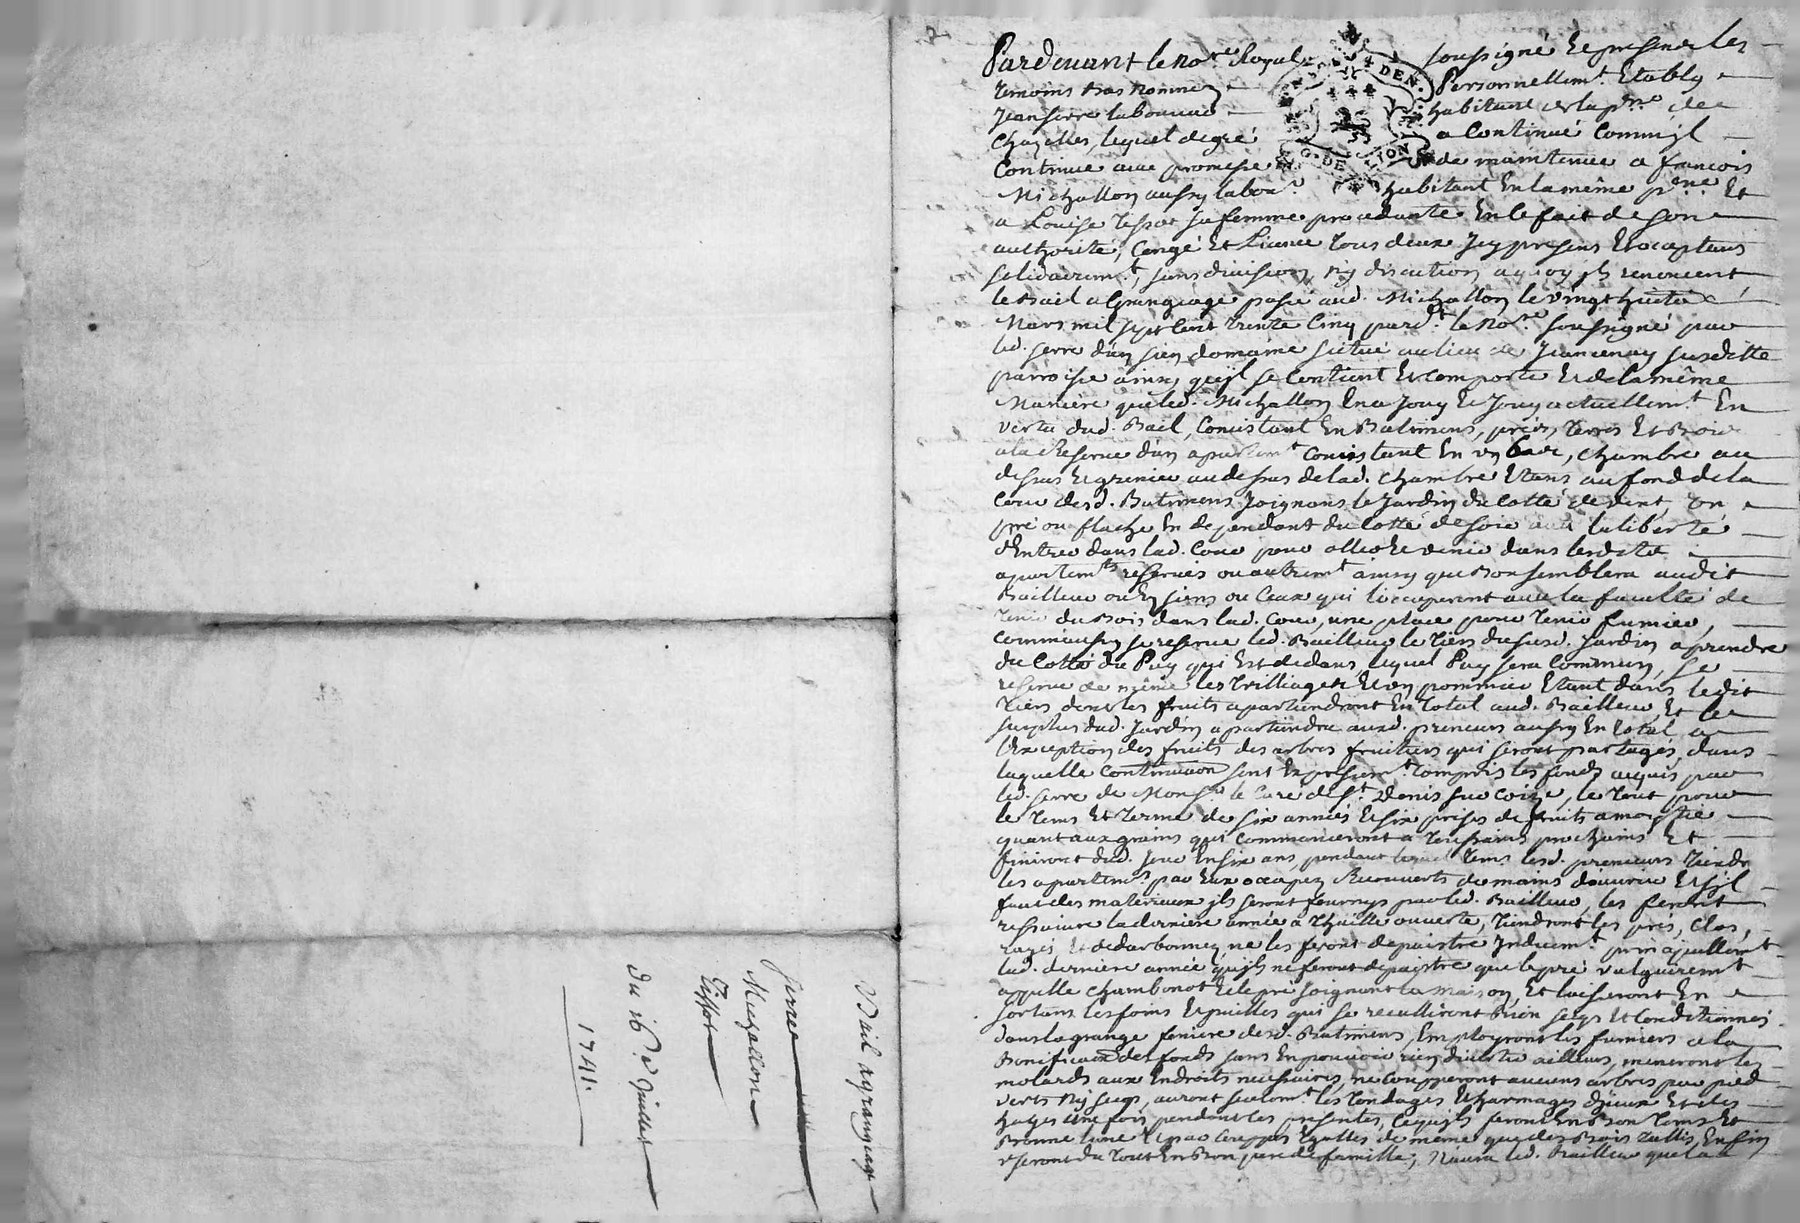 Pardevant le no.re Royal soussigné et presens les
temoins bas nommés Personnellem.t Etably
Jean serre laboureur habitant de la p.sse de
Chazelles, lequel de gré a Continué comm'jl
Continue avec promesse de maintenue a francois
Michallon aussy labou.r habitant En la même p.sse Et
a Louise Tissot sa femme procedante En le fait de son
authorité, Congé Et Licence tous deux Jcy presens Et acceptans
solidairem.t sans division ny discution a quoy jls renoncent
le Bail a Grangeage passé aud. Michallon le vingt huit
Mars mil sept Cent trente Cinq pard.t le No.re soussigné par
led. serre d'un sien domaine situé au lieu de susditte
parroisse ainsy qu'jl se Contient Et comporte Et de la même
Maniére que led. Michallon En a Jouy Et Jouy actuellem.t En
vertu dud. Bail, Consistant En Batimens, prés, terres Et Bois
a la Reserve d'un apartem.t Consistant En un bas, chambre au
dessus Et grenier au dessus de lad. chambre Etans au fond de la
Cour desd. Batimens Joignans le Jardin du Cotté de vent, un
pré ou flache En dependant du Cotté de soir avec la liberté
d'Entrer dans lad. Cour pour aller Et venir dans lesdits
apartem.ts reservés ou autrem.t ainsy que Bon semblera audit
Bailleur ou Es siens ou Ceux qui l'occuperont avec la faculté de
tenir du Bois dans lad. Cour, une place pour tenir fumier,
comm'aussy se reserve led. Bailleur le tiers du susd. Jardin a prendre
du Cotté du Puy qui Est dedans, lequel Puy sera Commun, se
reserve de même les trilliages Et un pommier Etant dans ledit
tiers dont les fruits apartiendront En total aud. Bailleur, Et le
surplus dud. Jardin apartiendra auxd. preneurs aussy En total a
l'Exception des fruits des arbres fruitiers qui seront partagés, dans
laquelle Continuation sont Expressem.t Compris les fonds acquis par
led. serre de Mons.r le Curé de S.t Denis sur Coize, le tout pour
le tems Et terme de six années Et six prises de fruits a moytié
quant aux grains qui Commenceront a toussaints prochains Et
finiront dud. jour En six ans, pendant lequel tems lesd. preneurs tiendr
les apartem.s par Eux occupés Recouverts de mains d'ouvrier Et s'jl
faut des materiaux jls seront fournys par led. Bailleur, les feront
ressuivre la derniére année a thuille ouverte, tiendront les prés, Clos,
razés Et ne les feront depaistre Jnduem.t principallem.t
lad. derniére année qu'jls ne feront depaistre que le pré vulguairemt
appellé chambonot Et le pré Joignant la maison, Et laisseront En
sortans les foins Et pailles qui se recuilliront Bien secqs Et Conditionnés
dans la grange feniere desd. Batimens, Employront les fumiers a la
Bonification des fonds sans En pouvoir rien divertir ailleurs, méneront les
molards aux Endroits necessaires, ne coupperont aucuns arbres par pied
verts Ny secqs, auront seulem.t les tondages Et des
hayes une fois pendant les presentes, Ce qu'jls feront En Bon tems Et
Bonne lune Et par Couppes Egalles de même que des Bois taillis, Enfin
useront du tout En Bon pere de famille, N'aura led. Bailleur que la
G. DE LION
4 DEN.
Bail a grangeage
Serre
Michallon
Tissot
du 16.e Juillet
1741.